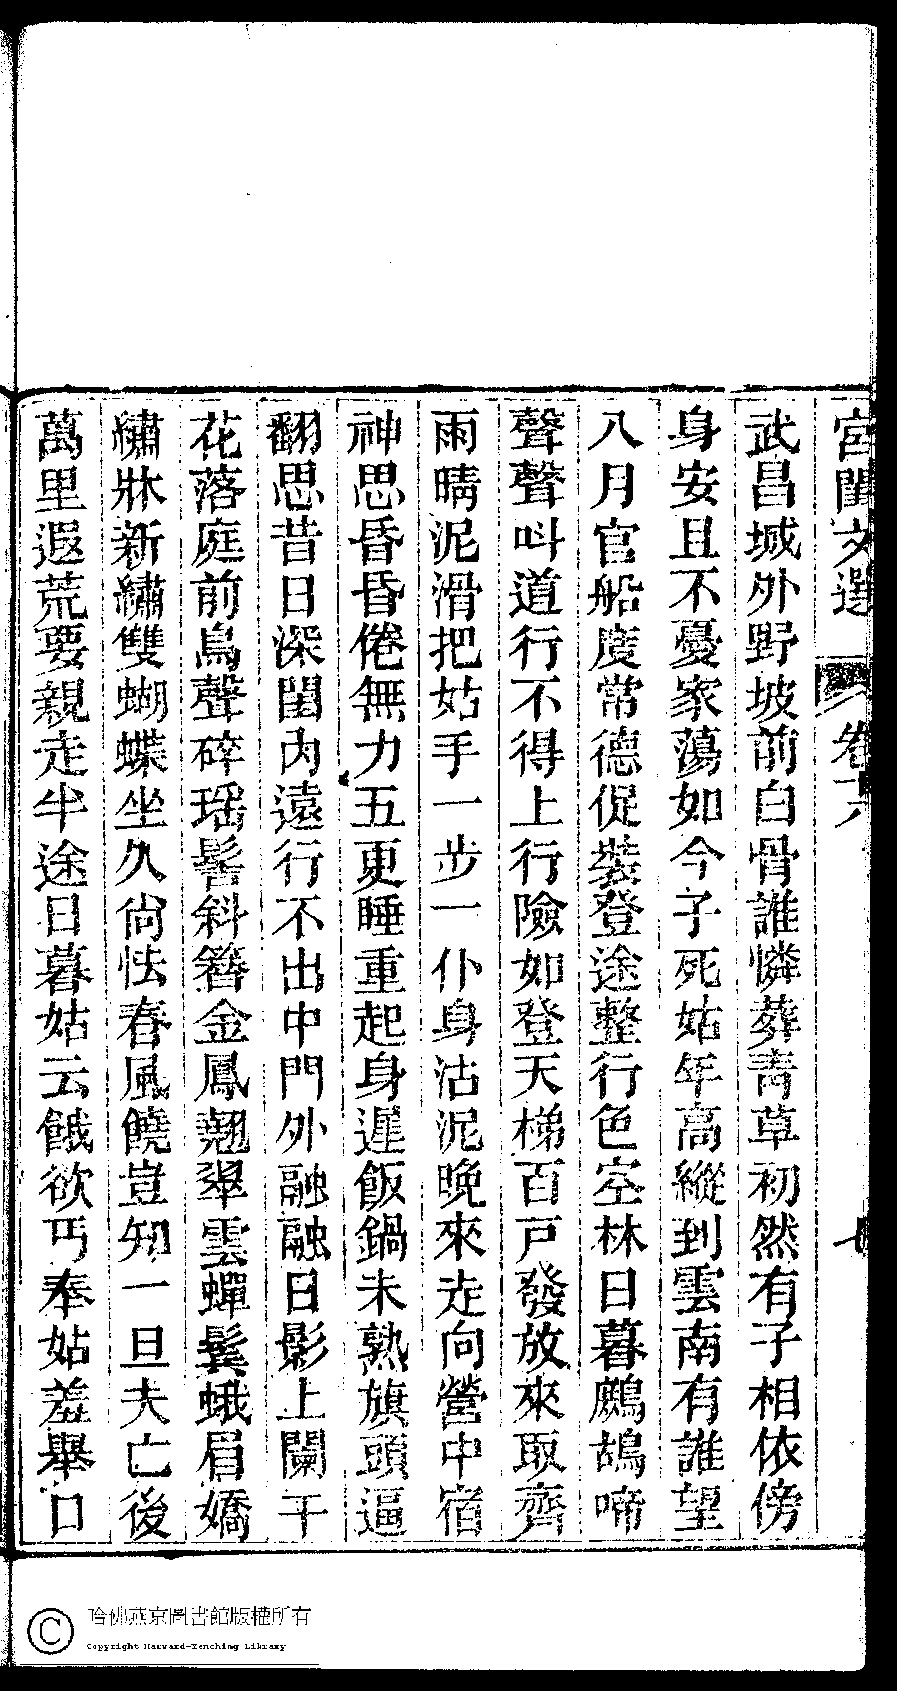 宮閨文選　卷十六　七
武昌城外野坡前白骨誰憐葬青草初然有子相依傍
身安且不憂家蕩如今子死姑年高縱到雲南有誰望
八月官船度常德促裝登途整行色空林日暮鷓鴣啼
聲聲呌道行不得上行險如登天梯百戸發放來取齊
雨晴泥滑把姑手一步一仆身沾泥晚來走向營中宿
神思昏昏倦無力五更睡重起身遲飯鍋未熟旗頭逼
翻思昔日深閨內遠行不出中門外融融日影上闌干
花落庭前鳥聲碎瑶髻斜簪金鳳翹翠雲蟬鬢蛾眉嬌
繡牀新繡雙蝴蝶坐久尙怯春風饒豈知一旦夫亡後
萬里遐荒要親走半途日暮姑云餓欲丐奉姑羞舉口
哈佛燕京圖書館版權所有
Copyright Harvard-Yenching Library